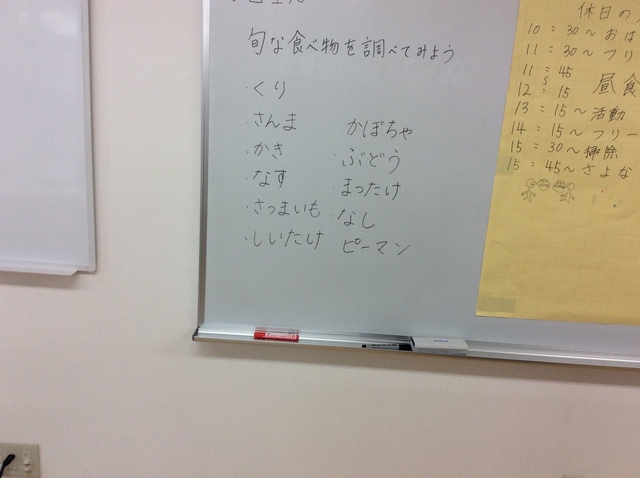 旬な食べ物を調べてみよう
・くり
・さんま
・かき
・なす
・さつまいも
・しいたけ
・かぼちゃ
・ぶどう
・まったけ
・なし
・ピーマン
休日の
10:30～おは
11:30～フリ
11:45
～
12:15
昼食
13:15～活動
14:15～フリー
15:30～掃除
15:45～さよな